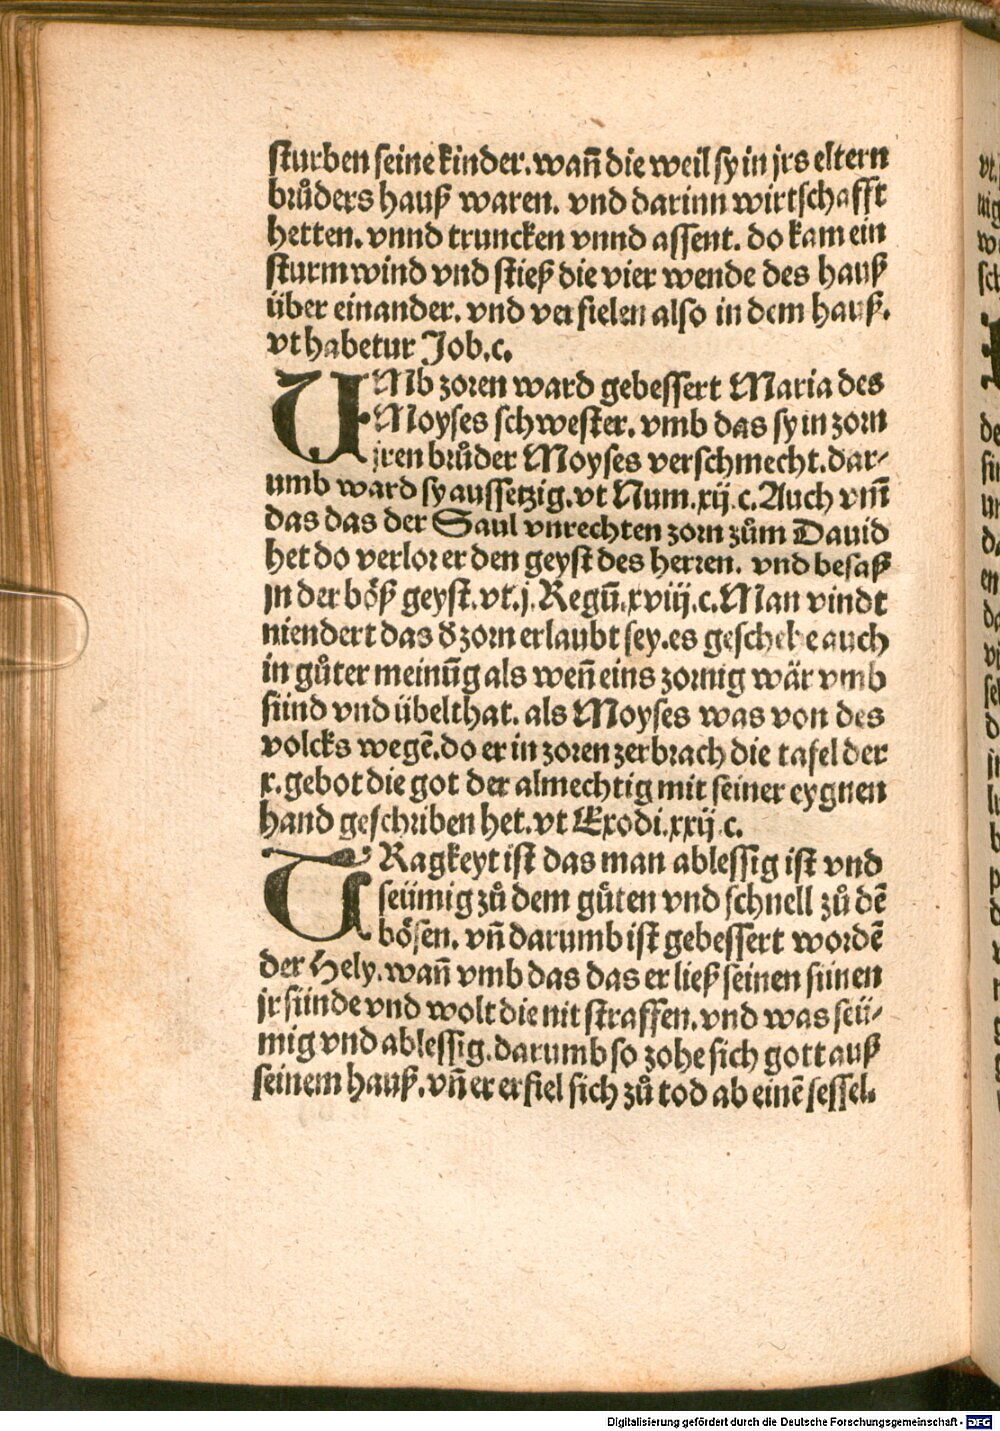 sturben seine kinder. wañ die weil sy in jrs eltern
brůders hauß waren. vnd darinn wirtschafft
hetten. vnnd truncken vnnd assent. do kam ein
sturmwind vnd stieß die vier wende des hauß
über einander. vnd verfielen also in dem hauß.
vt habetur Job.c.
UMb zoren ward gebessert Maria des
Moyses schwester. vmb das sy in zorn
jren brůder Moyses verschmecht. dar⸗
umb ward sy aussetzig. vt Num.xij.c. Auch vm̄
das das der Saul vnrechten zorn zům Dauid
het do verlor er den geyst des herren. vnd besaß
jn der böß geyst. vt.j. Regū.xviij.c. Man vindt
niendert das d̕ zorn erlaubt sey. es geschehe auch
in gůter meinūg als weñ eins zornig wär vmb
sünd vnd übelthat. als Moyses was von des
volcks wegē. do er in zoren zerbrach die tafel der
x. gebot die got der almechtig mit seiner eygnen
hand geschriben het. vt Exodi.xxij.c.
TRagkeyt ist das man ablessig ist vnd
seümig zů dem gůten vnd schnell zů dē
bösen. vñ darumb ist gebessert wordē
der Hely. wañ vmb das das er ließ seinen sünen
jr sünde vnd wolt die nit straffen. vnd was seü⸗
mig vnd ablessig. darumb so zohe sich gott auß
seinem hauß. vñ er erfiel sich zů tod ab einē sessel.
Digitalisierung gefördert durch die Deutsche Forschungsgemeinschaft - DFG